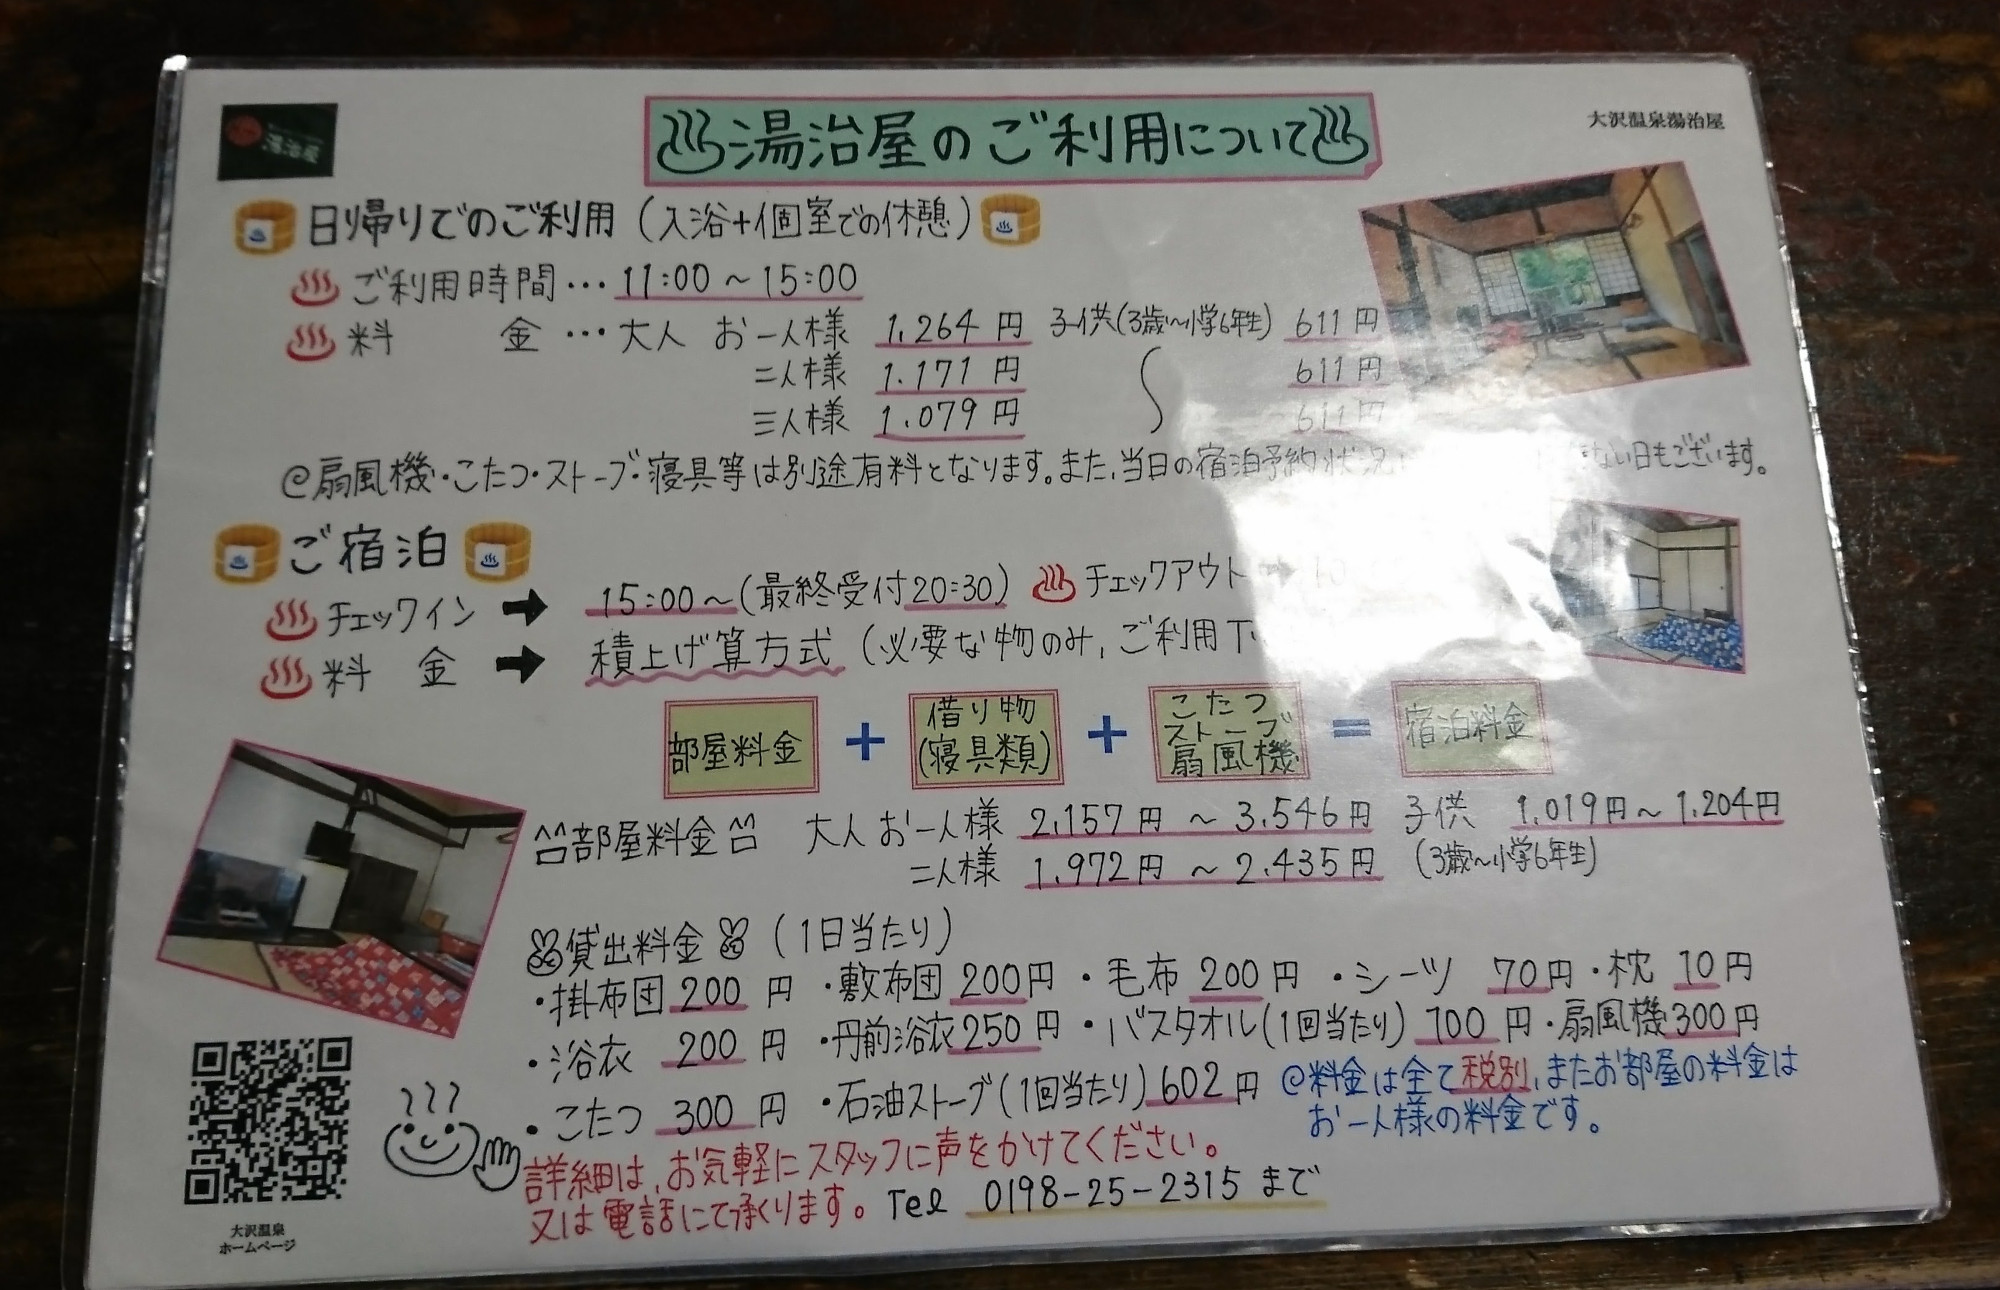 湯治屋
湯治屋のご利用について
大沢温泉湯治屋
日帰りでのご利用(入浴+個室での休憩)
ご利用時間…11:00~15:00
料 金…大人 お一人様 1,264円 子供(3歳~小学6年生) 611円
二人様 1.171円 611円
三人様 1.079円 611円
@扇風機・こたつ・ストーブ・寝具等は別途有料となります。また、当日の宿泊予約状況 ない日もございます。
ご宿泊
チェックイン➡15:00~(最終受付20:30) チェックアウト
料 金➡積上げ算方式(必要な物のみ、ご利用下
部屋料金 + 借り物(寝具類) + こたつ ストーブ 扇風機 = 宿泊料金
部屋料金 大人 お一人様 2,157円 ~ 3.546円 子供 1.019円~1.204円
二人様 1.972円 ~ 2.435円 (3歳~小学6年生)
貸出料金(1日当たり)
・掛布団200円 ・敷布団200円 ・毛布200円 ・シーツ 70円 ・枕10円
・浴衣 200円 ・丹前浴衣250円 ・バスタオル(1回当たり)100円 ・扇風機300円
・こたつ 300円 ・石油ストーブ(1回当たり)602円 @料金は全て税別、またお部屋の料金は
お一人様の料金です。
詳細は、お気軽にスタッフに声をかけてください。
又は電話にて承ります。Tel 0198-25-2315まで
大沢温泉
ホームページ